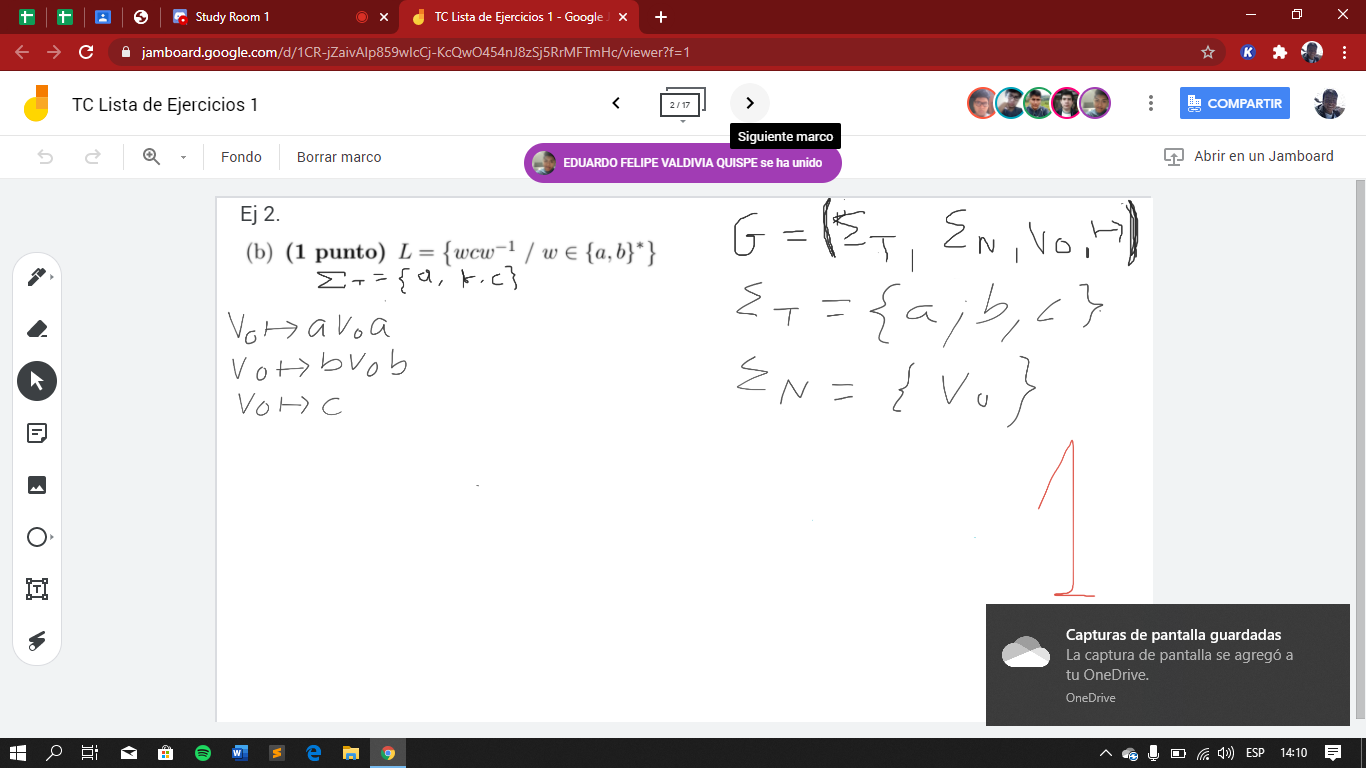 Study Room 1
TC Lista de Ejercicios 1 - Google J
jamboard.google.com/d/1CR-jZaivAlp859wIcCj-KcQwO454nJ8zSj5RrMFTmHc/viewer?f=1
TC Lista de Ejercicios 1
2 / 17
COMPARTIR
Siguiente marco
Fondo
Borrar marco
EDUARDO FELIPE VALDIVIA QUISPE se ha unido
Abrir en un Jamboard
Ej 2.
(b) (1 punto) L = {wcw⁻¹ / w ∈ {a, b}*}
Σ_T = {a, b, c}
V₀ ↦ a V₀ a
V₀ ↦ b V₀ b
V₀ ↦ c
G = (Σ_T, Σ_N, V₀, ↦)
Σ_T = {a; b, c}
Σ_N = {V₀}
1
Capturas de pantalla guardadas
La captura de pantalla se agregó a
tu OneDrive.
OneDrive
ESP
14:10